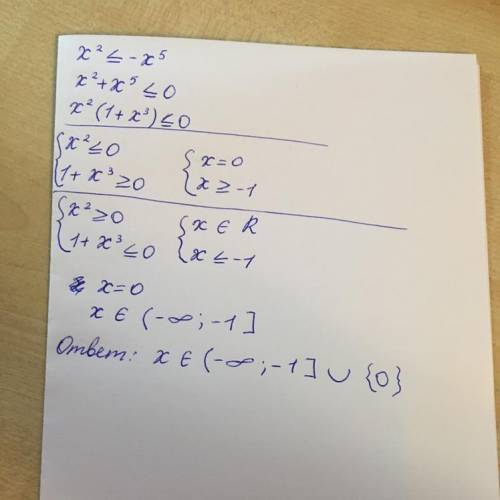 x² ≤ -x⁵
x² + x⁵ ≤ 0
x² (1 + x³) ≤ 0
{ x² ≤ 0 { x = 0
1 + x³ ≥ 0 x ≥ -1
{ x² ≥ 0 { x ∈ R
1 + x³ ≤ 0 x ≤ -1
x = 0
x ∈ (-∞; -1]
Ответ: x ∈ (-∞; -1] ∪ {0}